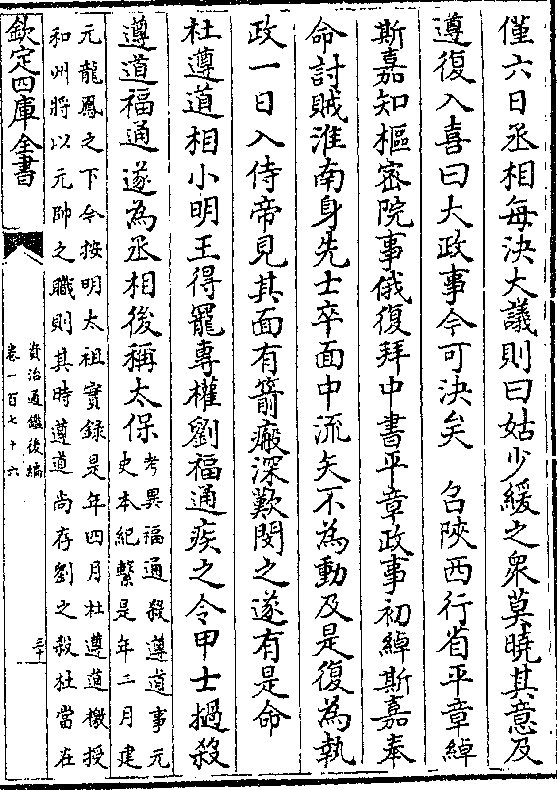 僅六日丞相每決大議則曰姑少緩之衆莫曉其意及
遵復入喜曰大政事今可決矣　召陜西行省平章綽
斯嘉知樞密院事俄復拜中書平章政事初綽斯嘉奉
命討賊淮南身先士卒面中流矢不為動及是復為執
政一日入侍帝見其面有箭瘢深歎閔之遂有是命
杜遵道相小明王得寵專權劉福通疾之令甲士撾殺
遵道福通遂為丞相後稱太保考異福通殺遵道事元
史本紀繫是年二月建
元龍鳳之下今按明太祖實録是年四月杜遵道檄授
和州將以元帥之職則其時遵道尚存劉之殺杜當在
欽定四庫全書
資治通鑑後編
卷一百七十六
三十